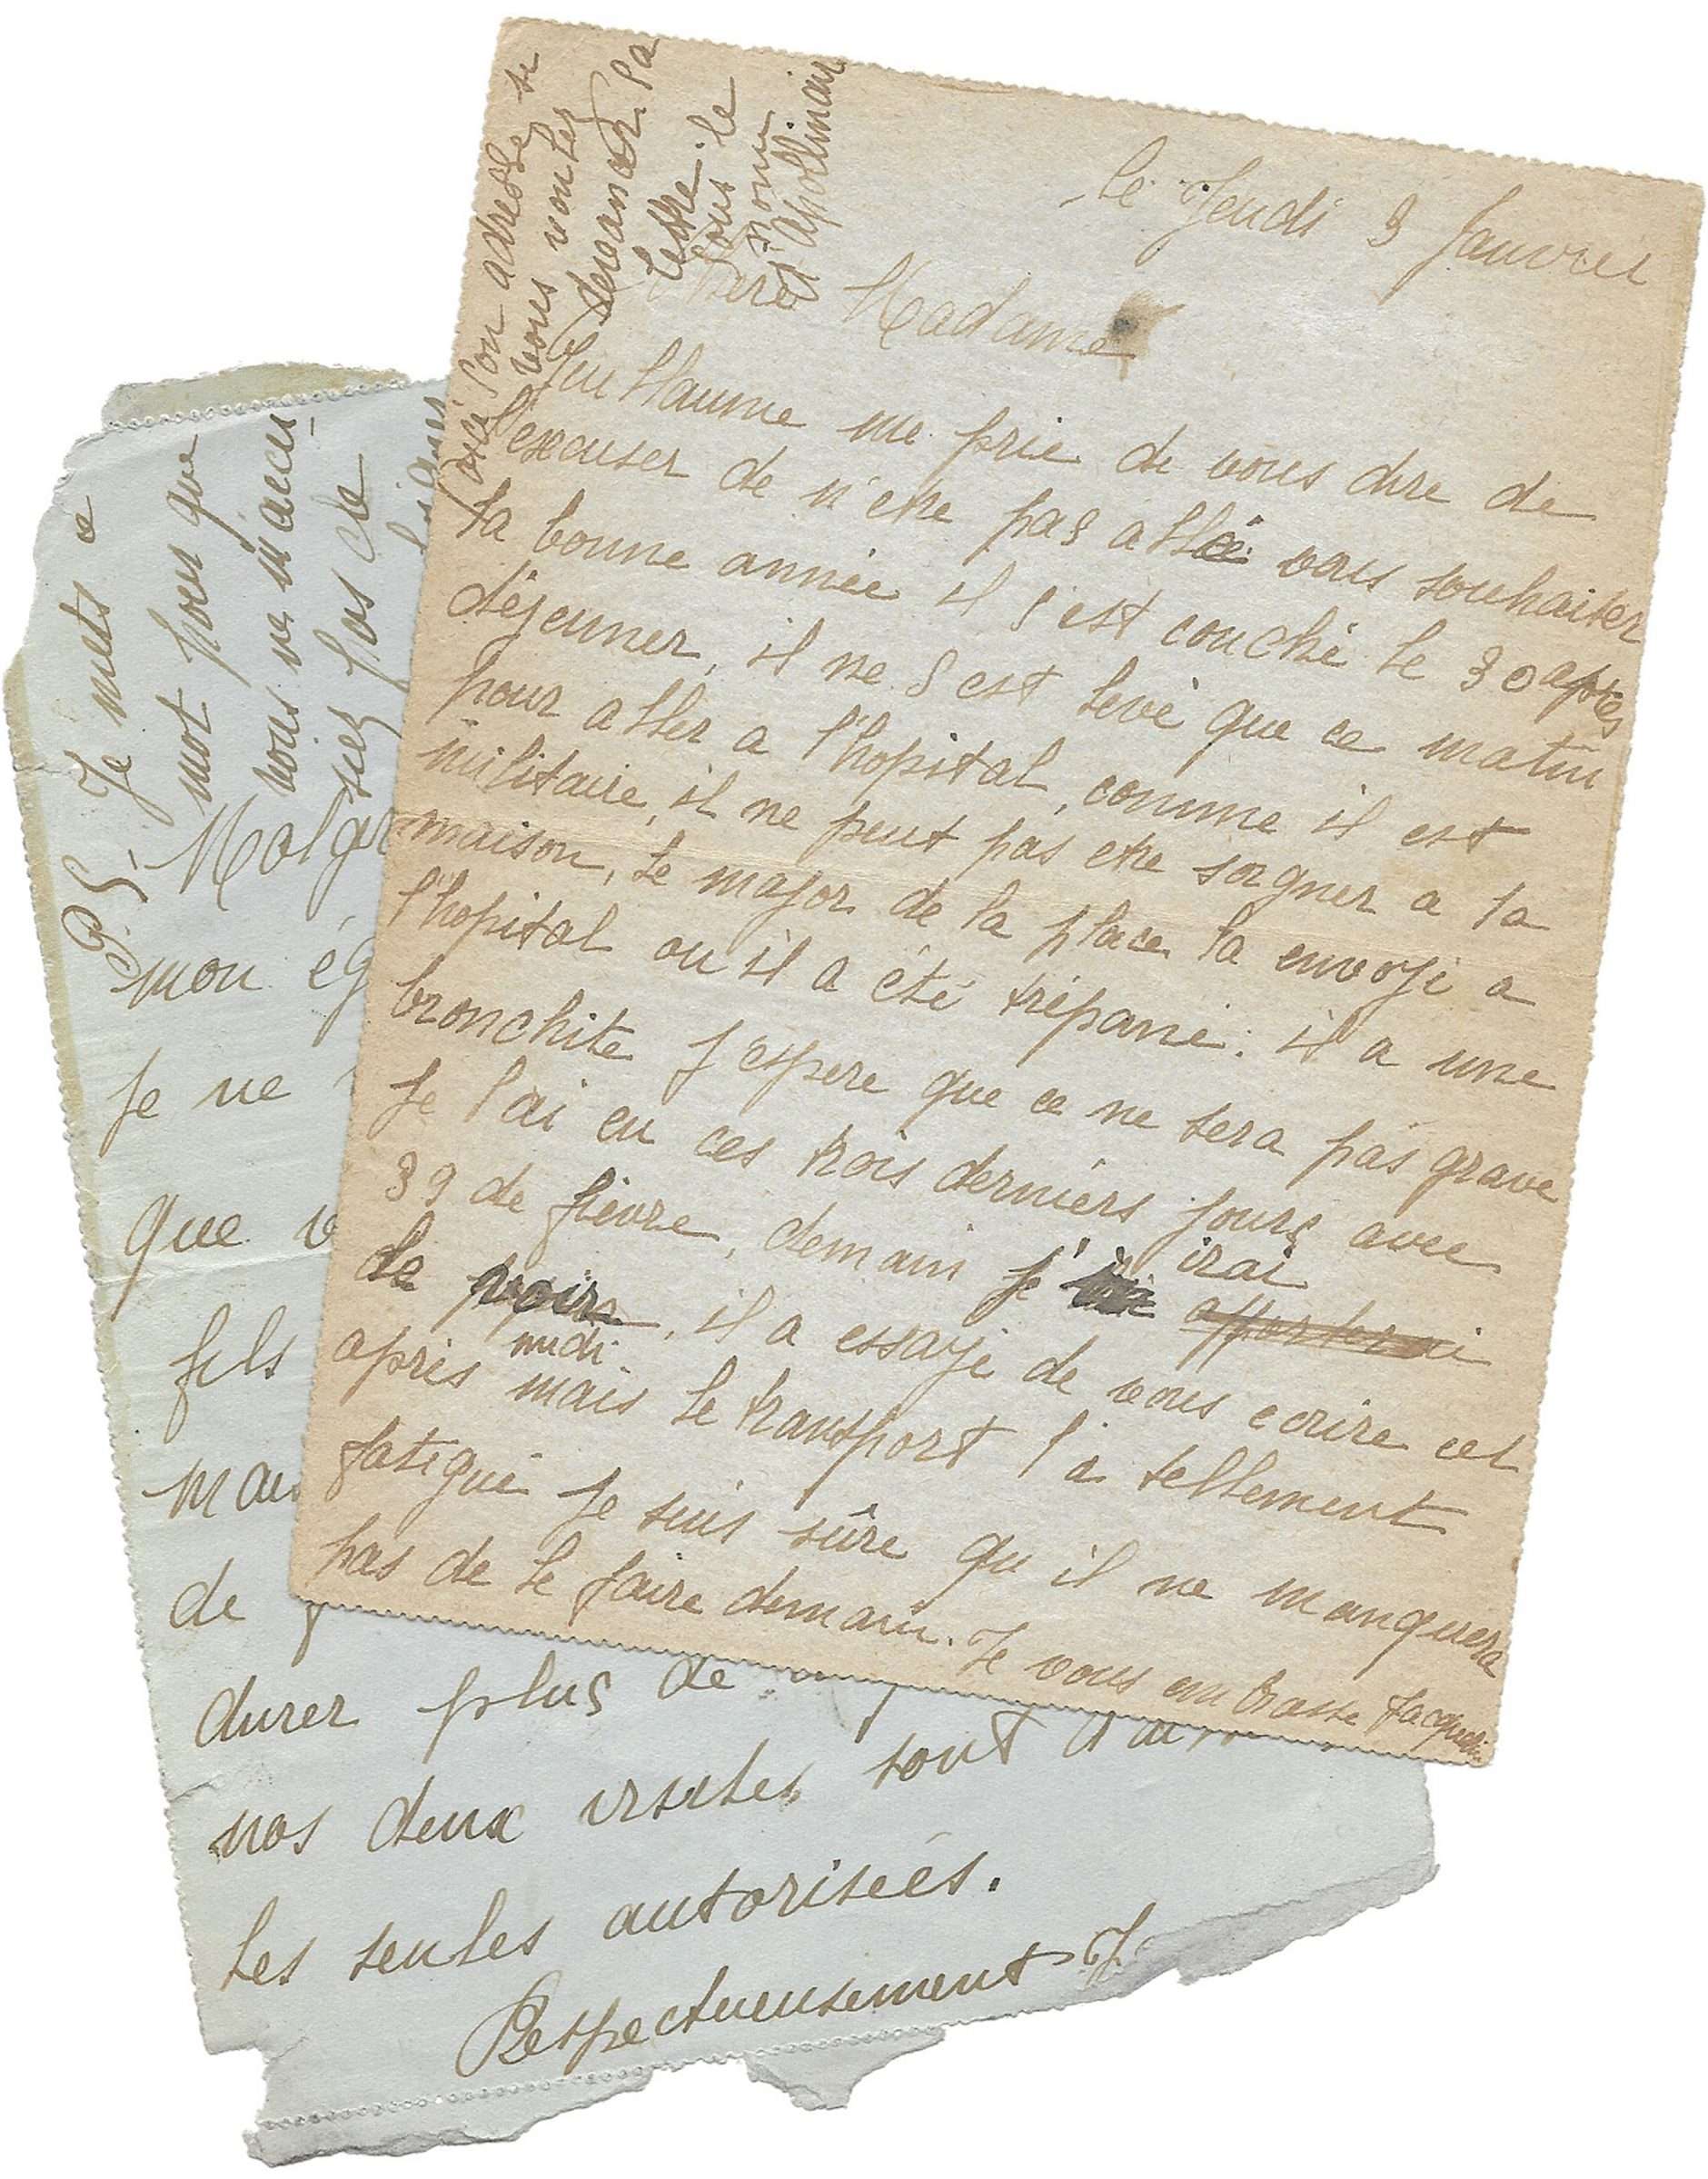 le Jeudi 3 Janvier
Chère Madame
Guillaume me prie de vous dire de
l'excuser de n'etre pas allé vous souhaiter
la bonne année il s'est couché le 30 après
déjeuner, il ne s'est levé que ce matin
pour aller a l'hopital, comme il est
militaire, il ne peut pas etre soigner a la
maison, le major de la place la envoyé a
l'hopital ou il a été trépané. il a une
bronchite j'espere que ce ne sera pas grave
je l'ai eu ces trois derniers jours avec
39 de fièvre, demain j' irai
le voir, il a essayé de vous ecrire cet
apres midi mais le transport l'a tellement
fatigué je suis sûre qu'il ne manquera
pas de le faire demain. Je vous embrasse Jacqueline
son adresse si
vous voulez
demander. sa
lettre. le
sous
nom
d'Apollinaire
P.S. Je mets ce
mot pour que
vous ne m'accu
siez pas de
mon ég
je ne
que v
fils
mais
de
durer plus de
nos deux visites sont
les seules autorisées.
Respectueusement J